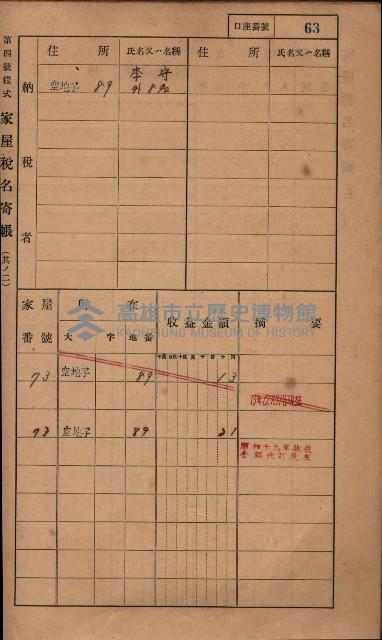 口座番號 63
第四號樣式
家屋稅名寄帳
(共ノ二)
住所 氏名又ハ名稱 住所 氏名又ハ名稱
納稅者
空地子 89 李守
外8名
家屋番號 所在 收益金額 摘要
大字 地番
高雄市立歷史博物館
KAOHSIUNG MUSEUM OF HISTORY
73 空地子 89 13
73 空地子 89 21
昭和十九年改技